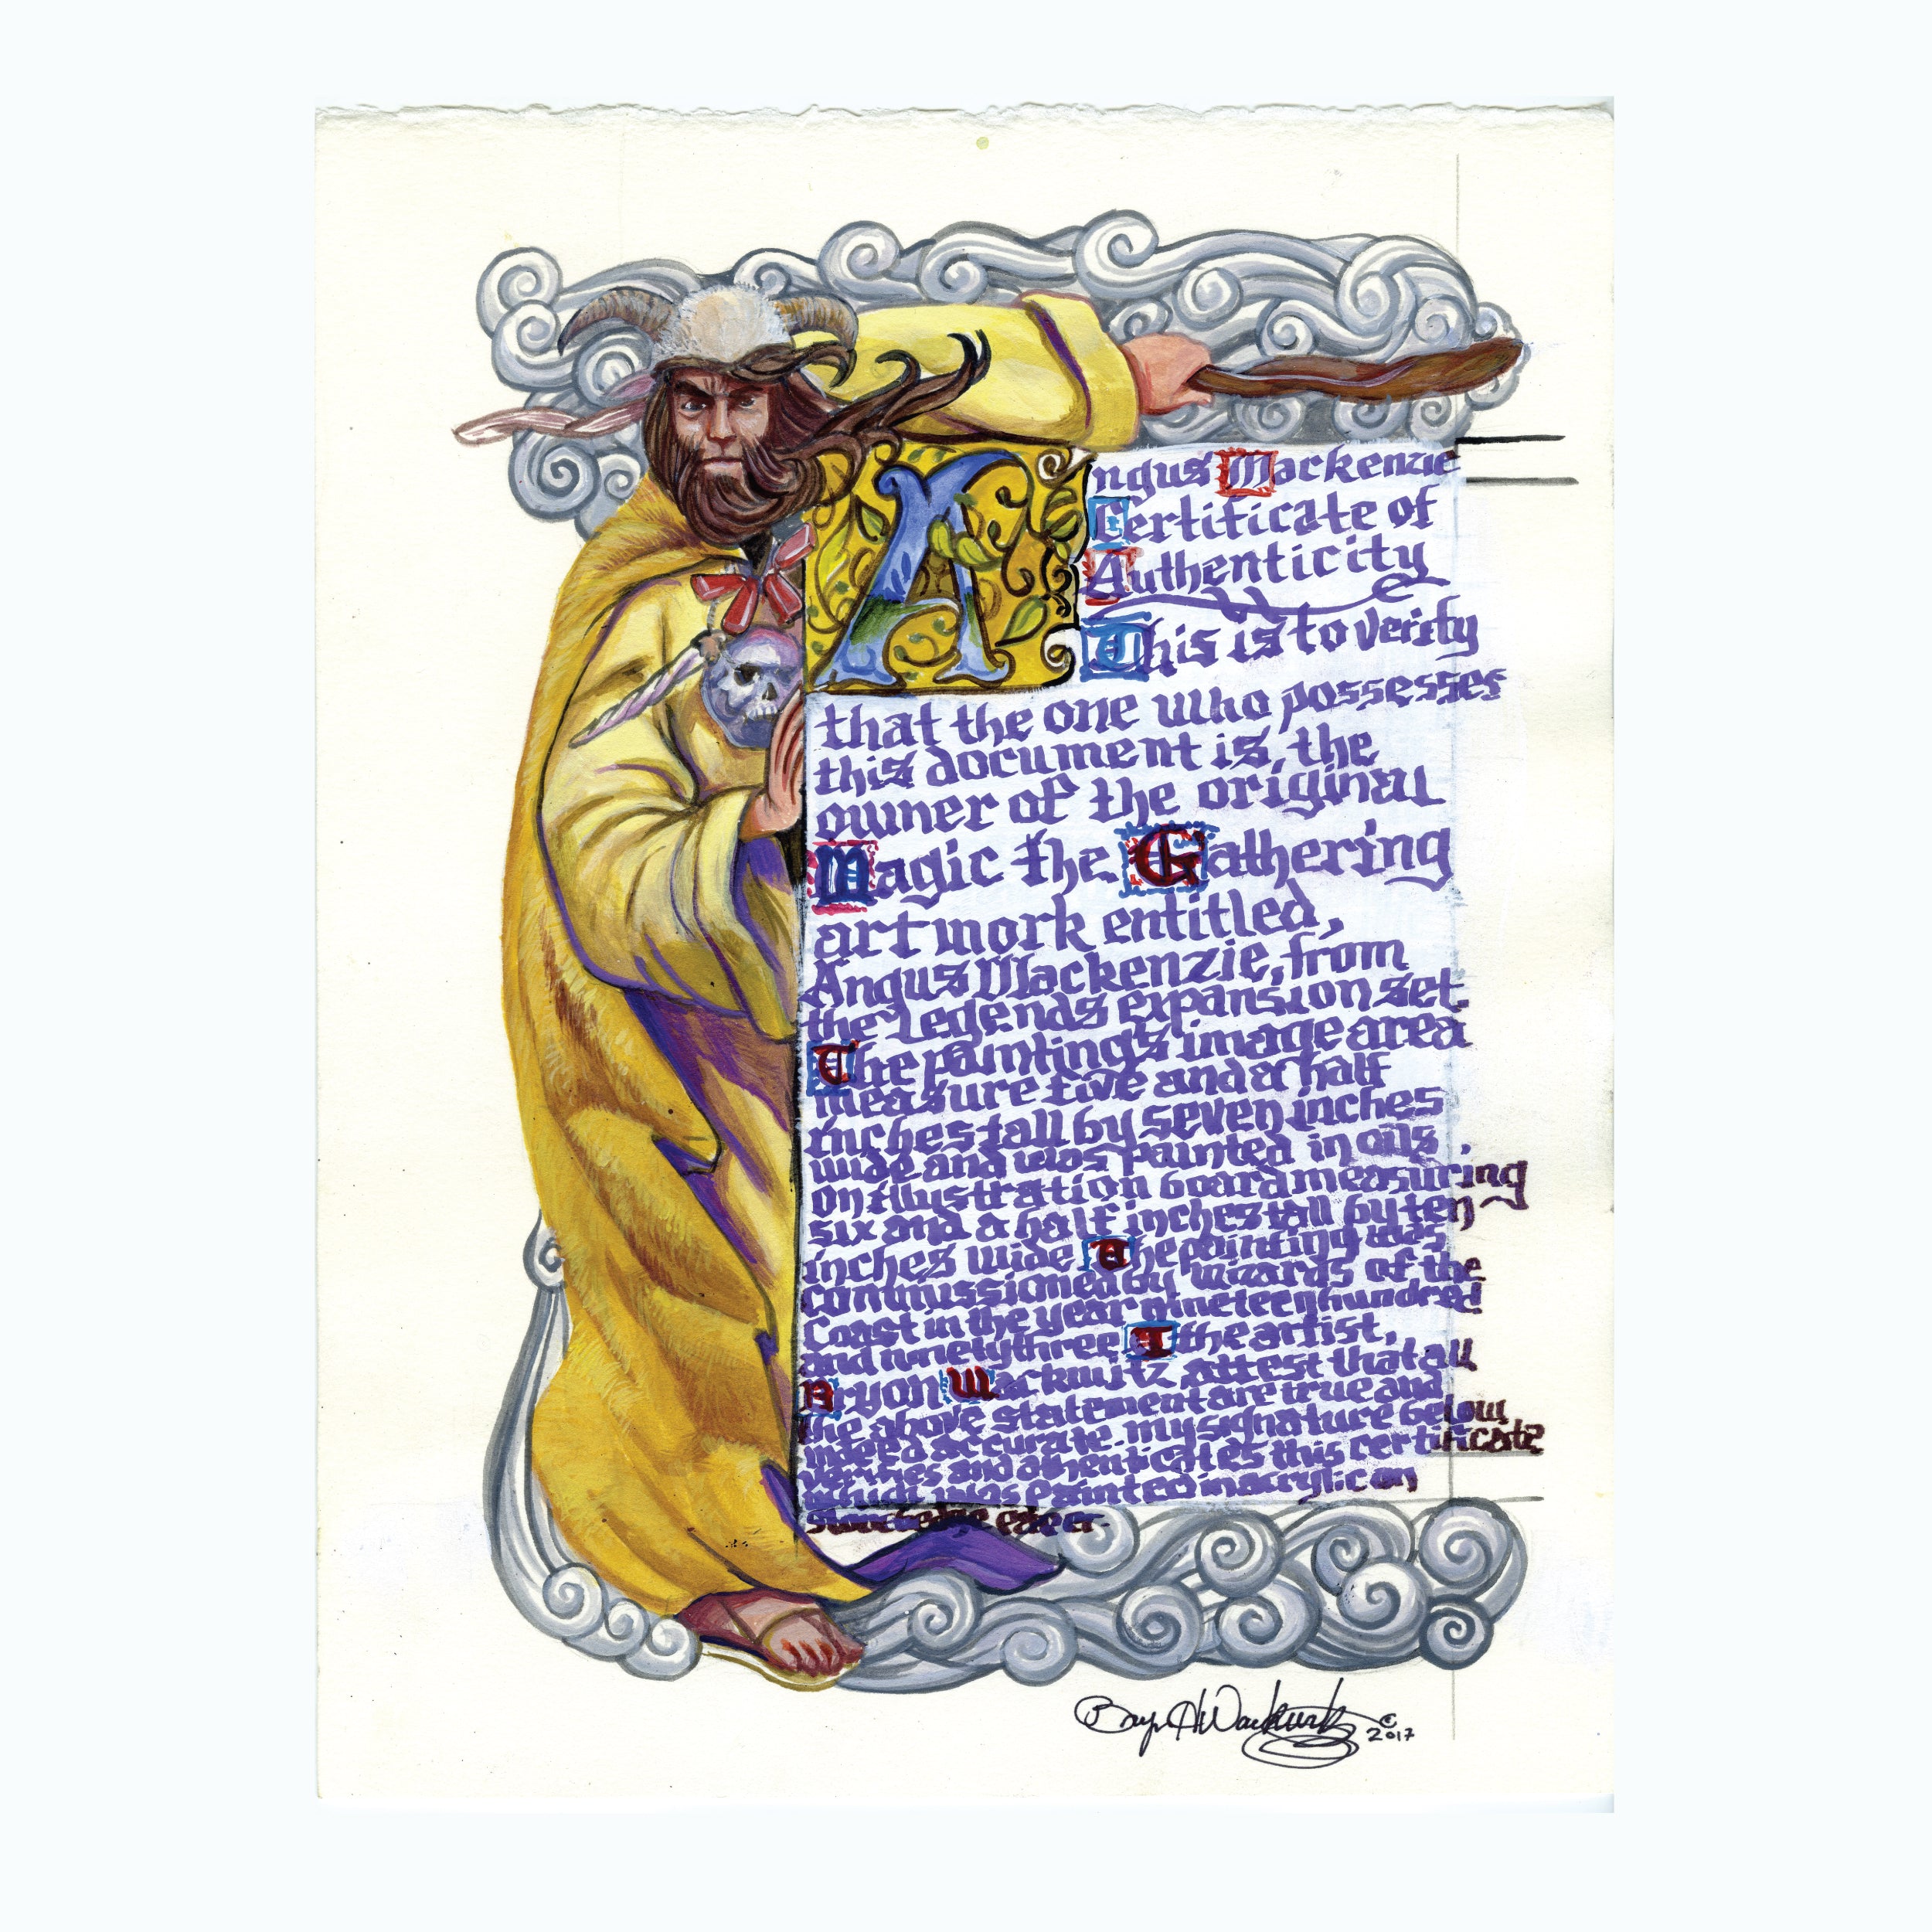 Angus Mackenzie
Certificate of
Authenticity
This is to verify
that the one who possesses
this document is, the
owner of the original
Magic the Gathering
artwork entitled,
Angus Mackenzie, from
the Legends expansion set.
The painting's image area
measure five and a half
inches tall by seven inches
wide and was painted in oils,
on illustration board measuring
six and a half inches tall by ten
inches wide The painting was
commissioned by wizards of the
Coast in the year nineteen hundred
and ninety three I the artist,
Bryon Wackwitz attest that all
the above statement are true and
indeed accurate. my signature below
verifies and athenticates this certificate
which was painted in acrylic on
Bryon A Wackwitz © 2017